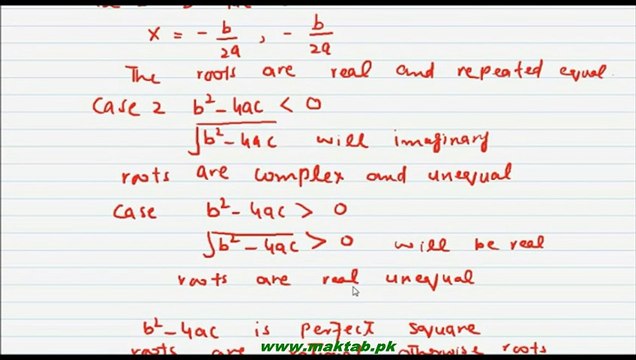 x = - b/2a , - b/2a
The roots are real and repeated equal
Case 2 b² - 4ac < 0
√b² - 4ac will imaginary
roots are complex and unequal
Case b² - 4ac > 0
√b² - 4ac > 0 will be real
roots are real unequal
b² - 4ac is perfect square
roots are rational otherwise roots
www.maktab.pk